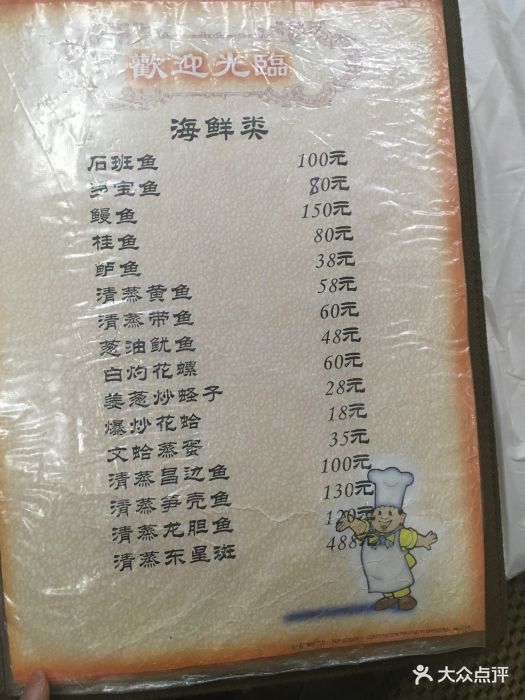 歡迎光臨
海鲜类
石班鱼 100元
多宝鱼 80元
鳗鱼 150元
桂鱼 80元
鲈鱼 38元
清蒸黄鱼 58元
清蒸带鱼 60元
葱油鱿鱼 48元
白灼花螺 60元
姜葱炒蛏子 28元
爆炒花蛤 18元
文蛤蒸蛋 35元
清蒸昌边鱼 100元
清蒸笋壳鱼 130元
清蒸龙胆鱼 120元
清蒸东星斑 488元
大众点评